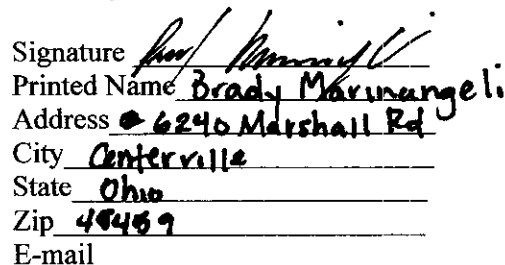 Signature
Printed Name Brady Marinangeli
Address 6240 Marshall Rd
City Centerville
State Ohio
Zip 45459
E-mail